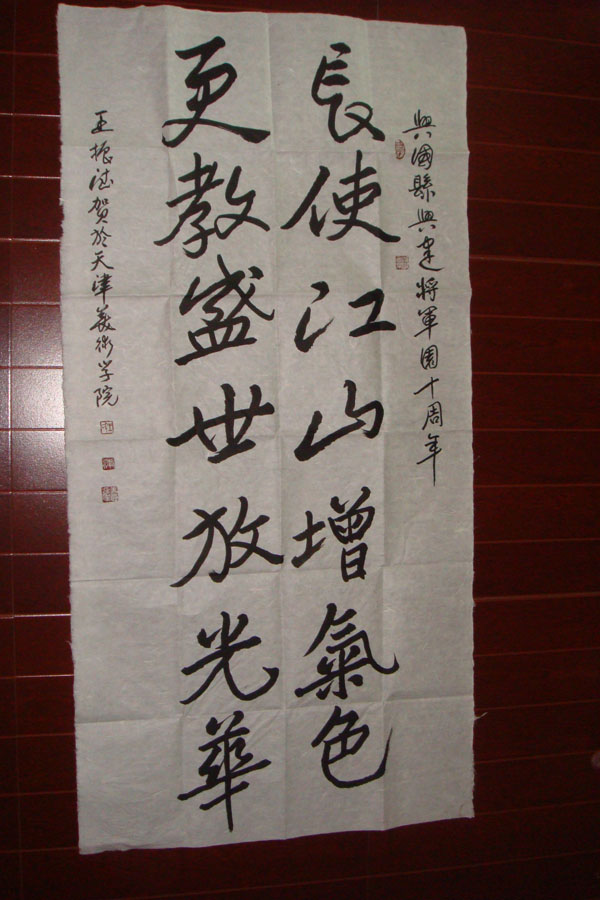 興國縣興建將軍園十周年
長使江山增氣色
更教盛世放光華
王振德賀於天津美術学院